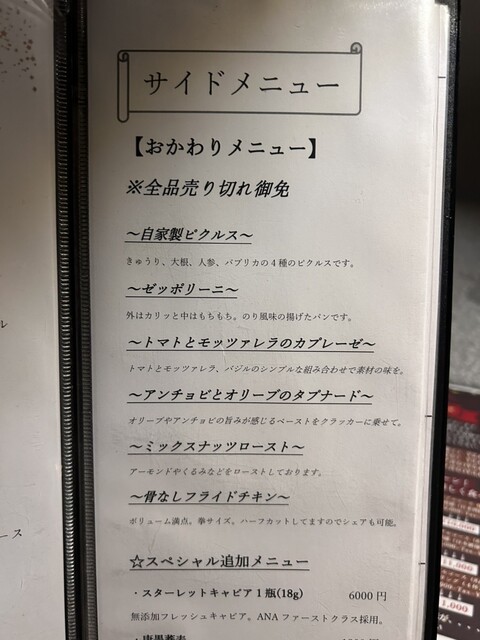 サイドメニュー
【おかわりメニュー】
※全品売り切れ御免
～自家製ピクルス～
きゅうり、大根、人参、パプリカの4種のピクルスです。
～ゼッポリーニ～
外はカリッと中はもちもち。のり風味の揚げたパンです。
～トマトとモッツァレラのカプレーゼ～
トマトとモッツァレラ、バジルのシンプルな組み合わせで素材の味を。
～アンチョビとオリーブのタプナード～
オリーブやアンチョビの旨みが感じるペーストをクラッカーに乗せて。
～ミックスナッツロースト～
アーモンドやくるみなどをローストしております。
～骨なしフライドチキン～
ボリューム満点。拳サイズ、ハーフカットしてますのでシェアも可能。
☆スペシャル追加メニュー
・スターレットキャビア1瓶(18g) 6000円
無添加フレッシュキャビア。ANAファーストクラス採用。